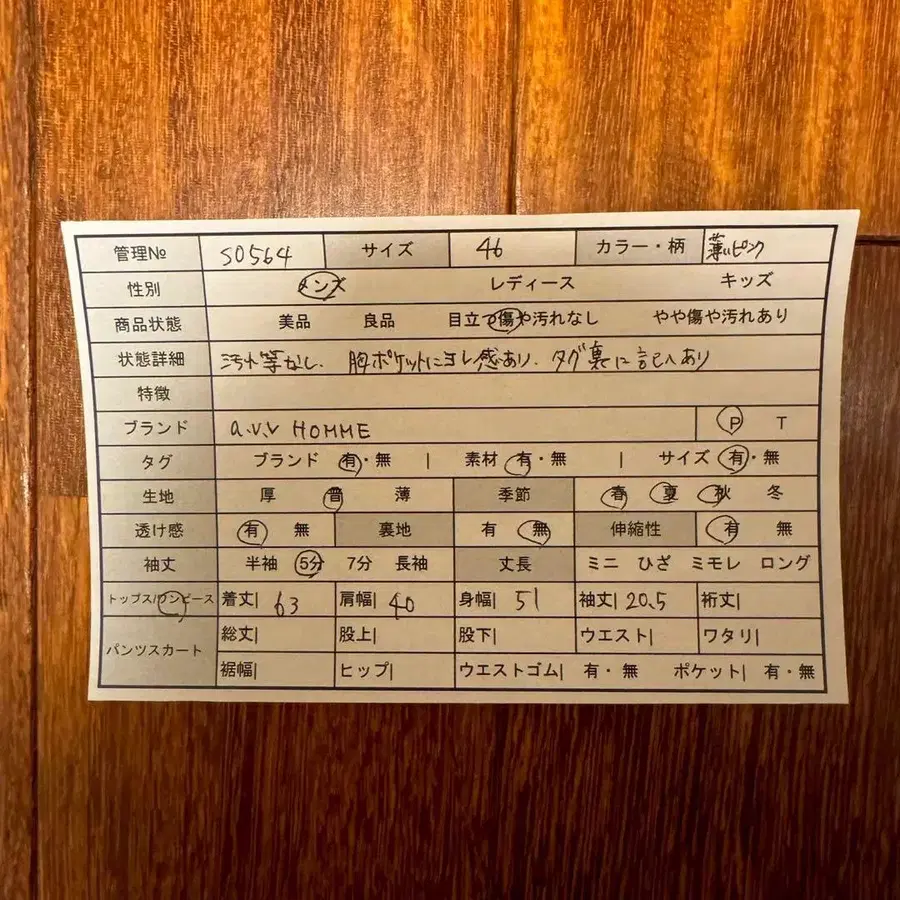 管理№ S0564 サイズ 46 カラー・柄 薄いピンク
性別 メンズ レディース キッズ
商品状態 美品 良品 目立つ傷や汚れなし やや傷や汚れあり
状態詳細 汚れ等なし. 胸ポケットにヨレ感あり. タグ裏に記入あり
特徴
ブランド a.v.v HOMME P T
タグ ブランド 有・無 | 素材 有・無 | サイズ 有・無
生地 厚 普 薄 季節 春 夏 秋 冬
透け感 有 無 裏地 有 無 伸縮性 有 無
袖丈 半袖 5分 7分 長袖 丈長 ミニ ひざ ミモレ ロング
トップス/ワンピース 着丈| 63 肩幅| 40 身幅| 51 袖丈| 20.5 裄丈|
パンツスカート 総丈| 股上| 股下| ウエスト| ワタリ|
裾幅| ヒップ| ウエストゴム| 有・無 ポケット| 有・無